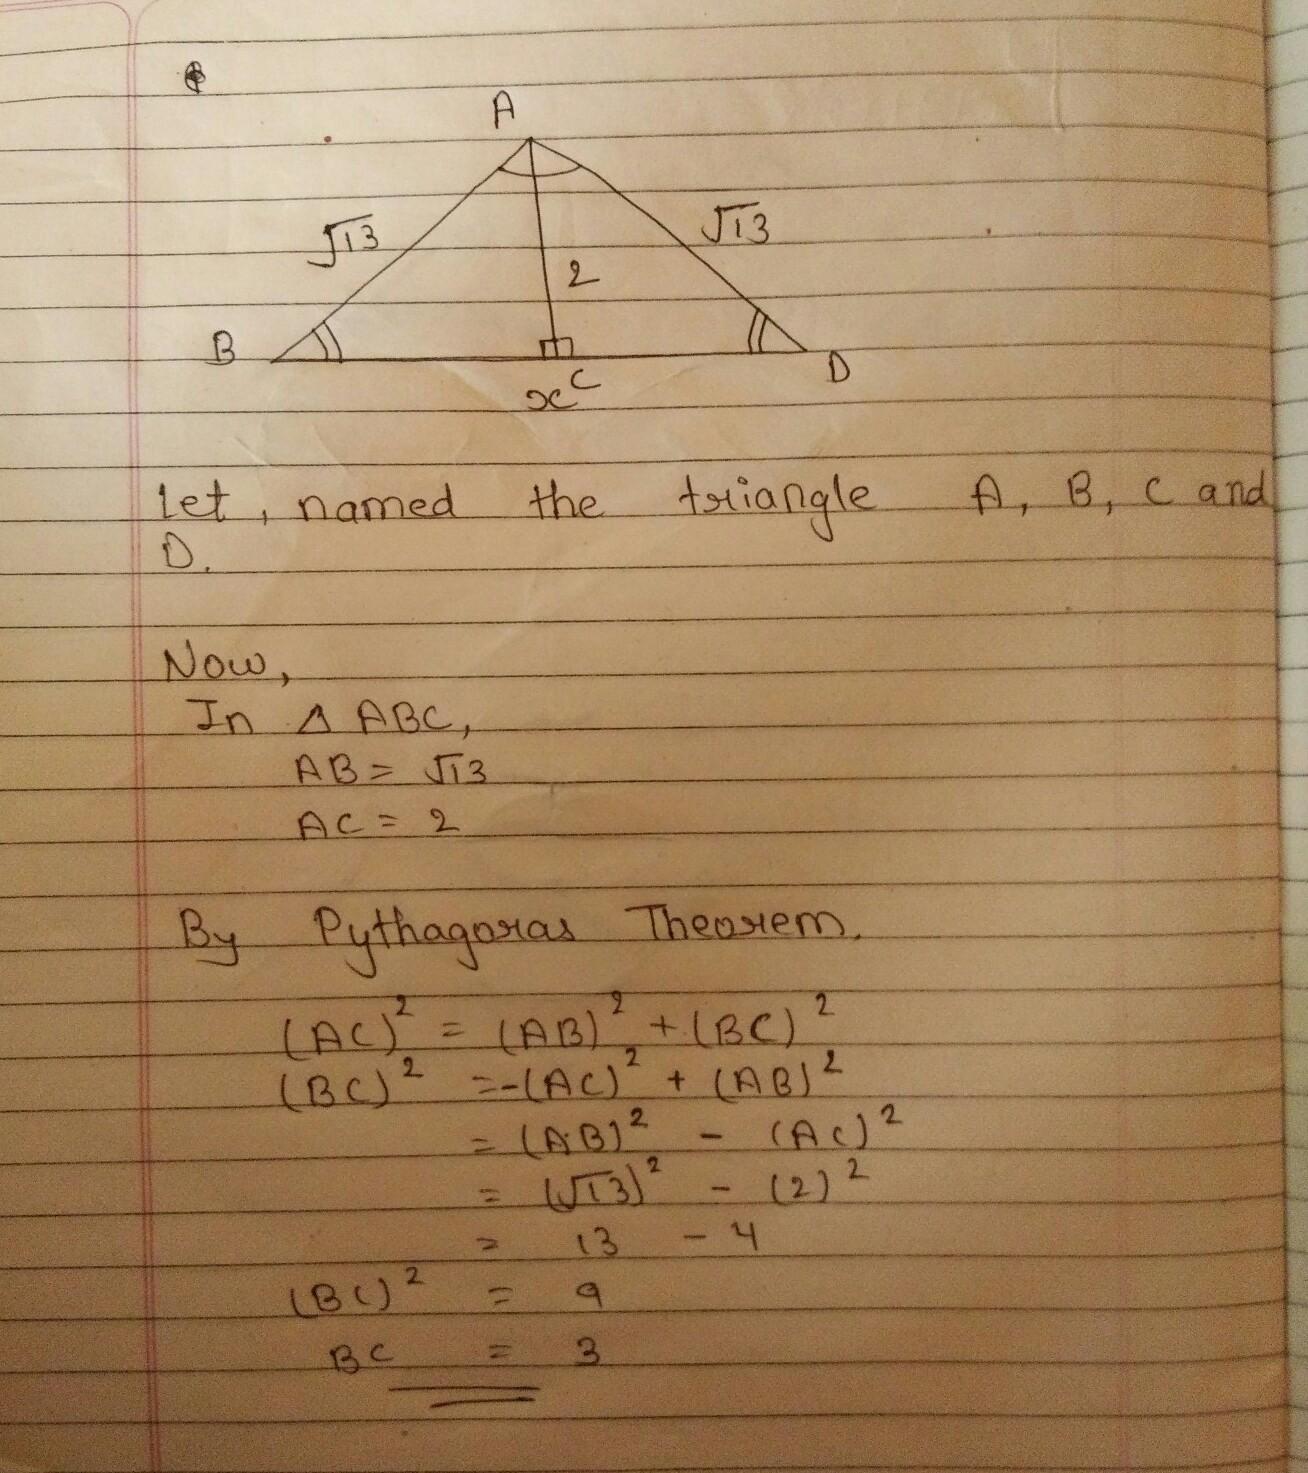 A
√13
√13
2
B
D
x C
Let, named the triangle A, B, C and
D.
Now,
In Δ ABC,
AB = √13
AC = 2
By Pythagoras Theorem.
(AC)² = (AB)² + (BC)²
(BC)² = -(AC)² + (AB)²
= (AB)² - (AC)²
= (√13)² - (2)²
= 13 - 4
(BC)² = 9
BC = 3